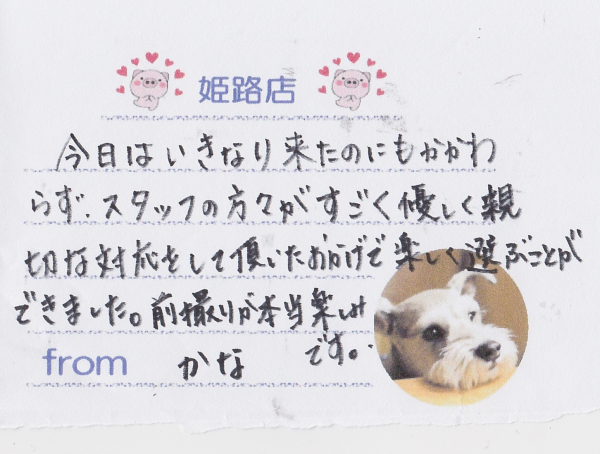 姫路店
今日はいきなり来たのにもかかわ
らず、スタッフの方々がすごく優しく親
切な対応をして頂いたおかげで楽しく選ぶことが
できました。前撮りが本当楽しみ
です。
from かな